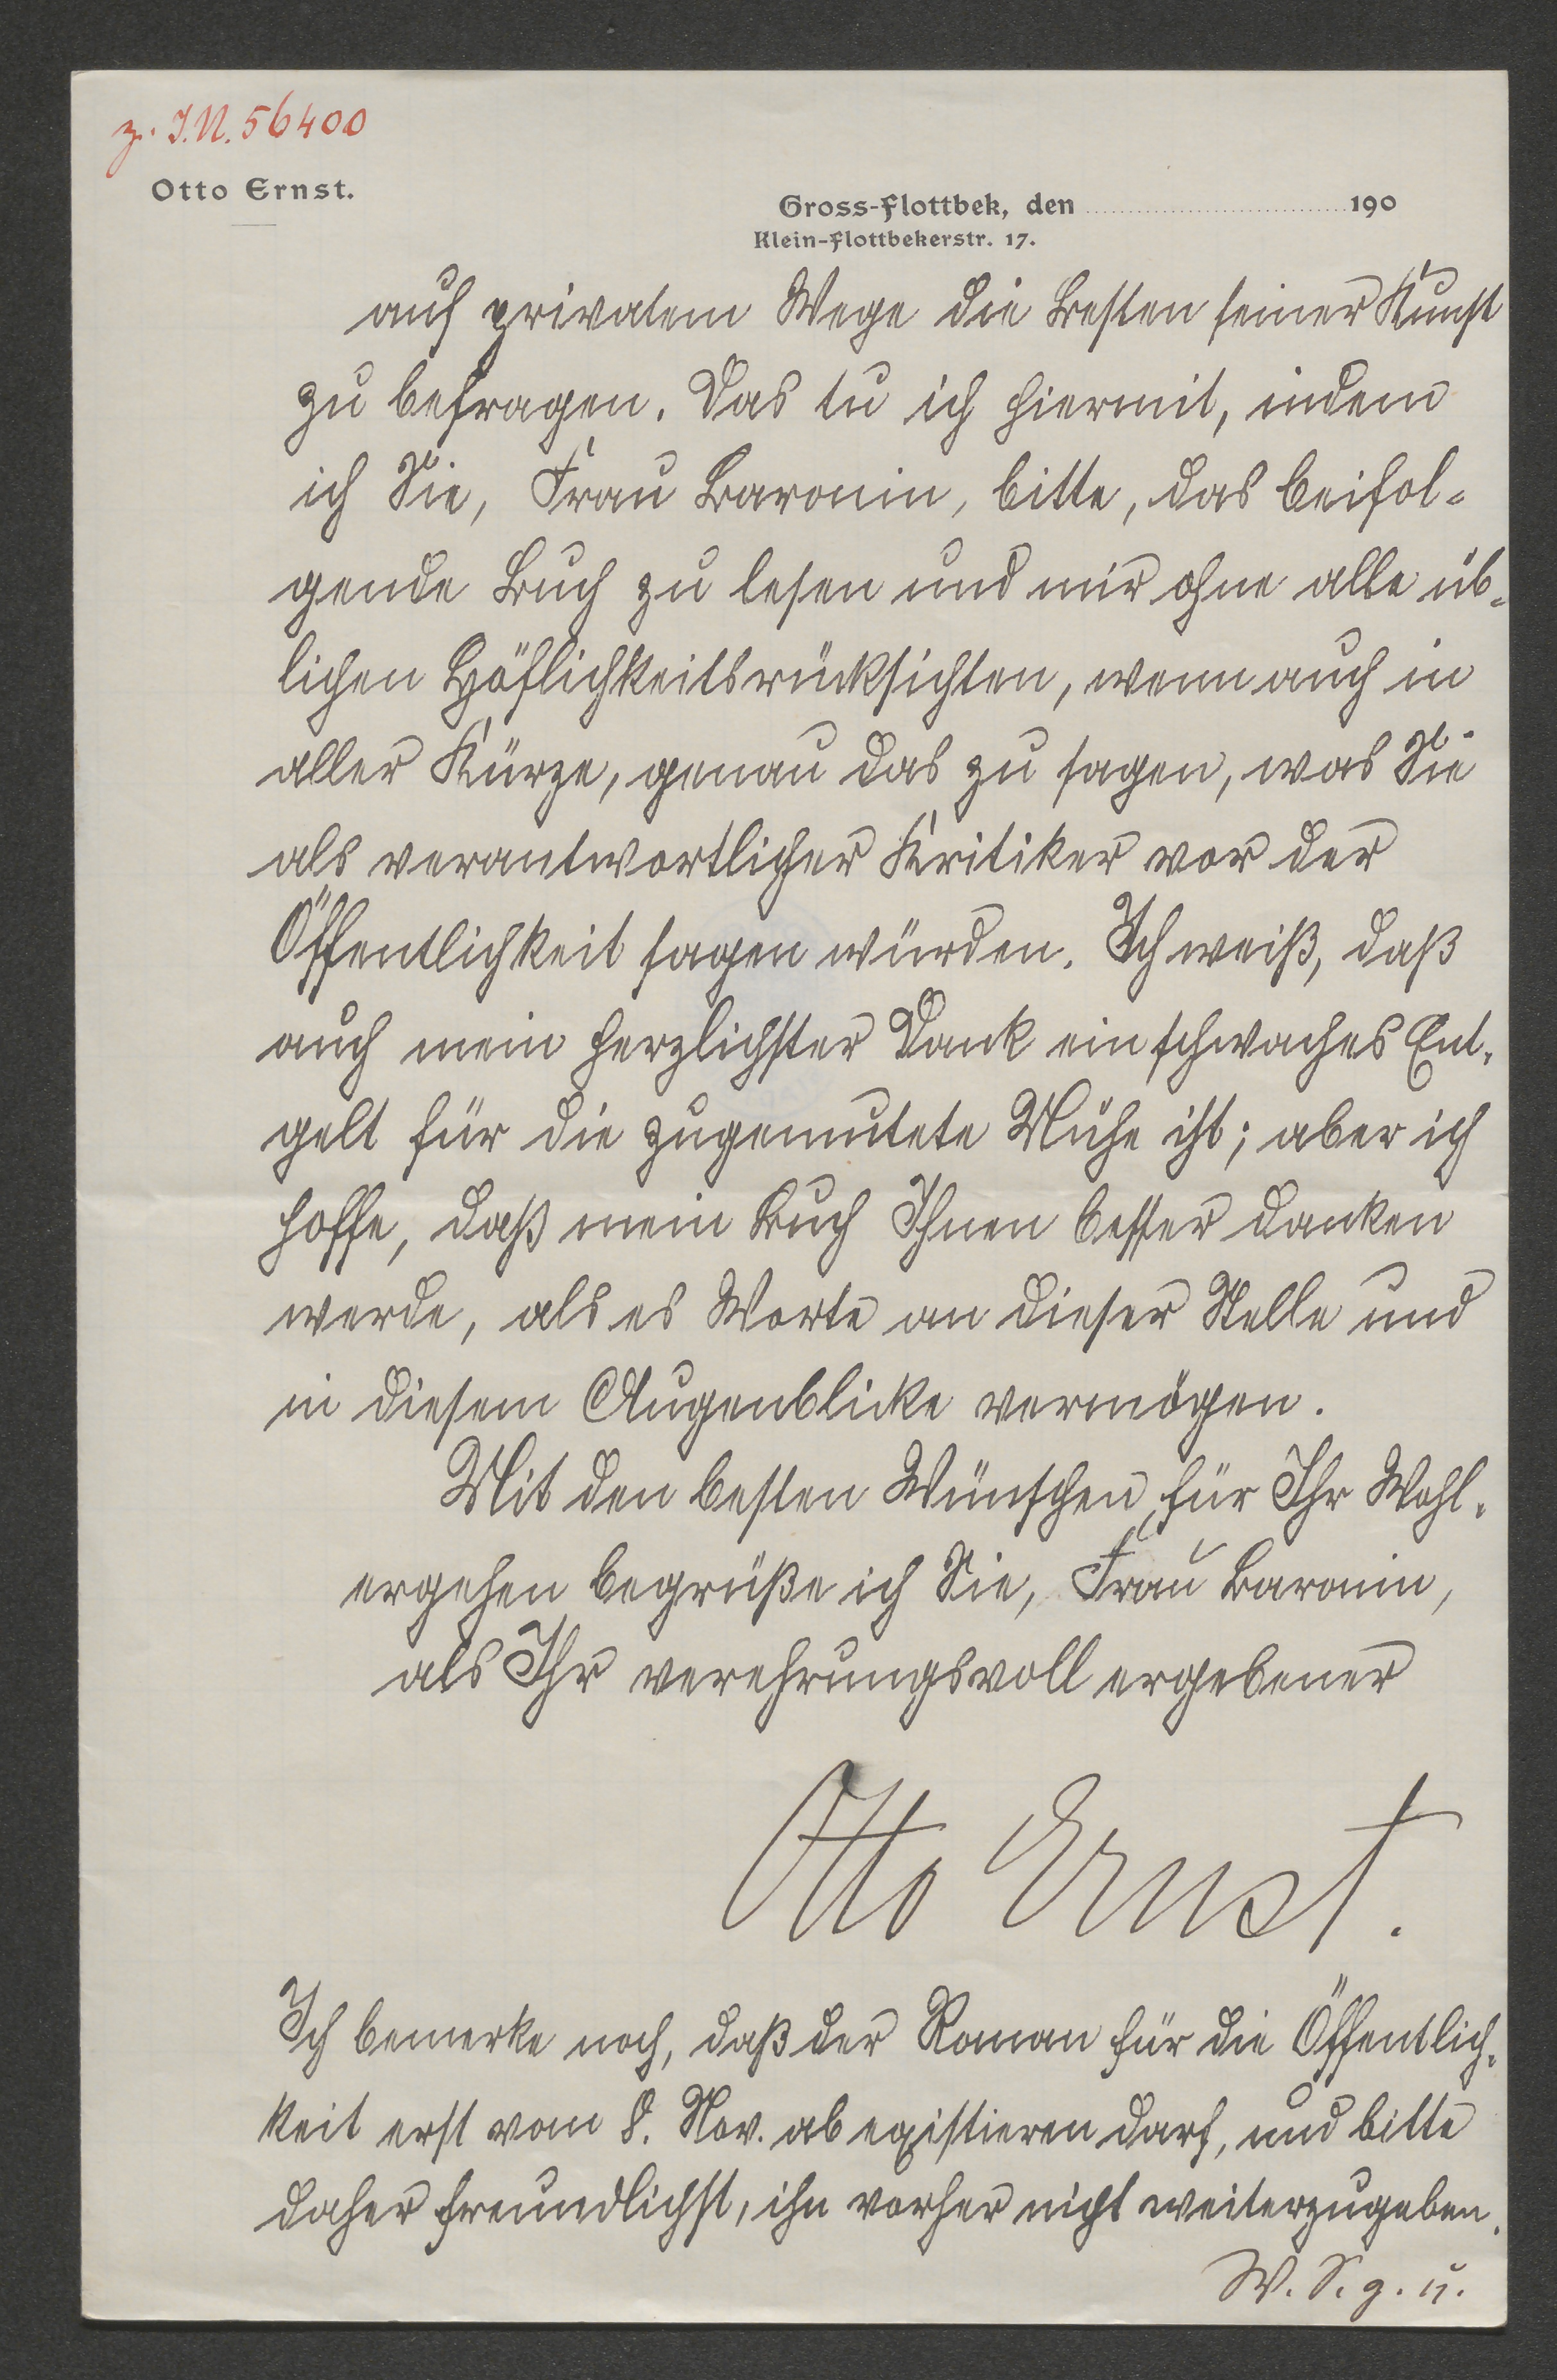 z. I.N. 56400
Otto Ernst.
Gross-Flottbek, den 190
Klein-Flottbekerstr. 17.
auf privatem Wege die Besten seiner Kunst
zu befragen. Das tu ich hiermit, indem
ich Sie, Frau Baronin, bitte, das beifol-
gende Buch zu lesen und mir ohne alle üb-
lichen Höflichkeitsrücksichten, wenn auch in
aller Kürze, genau das zu sagen, was Sie
als verantwortlicher Kritiker vor der
Öffentlichkeit sagen würden. Ich weiß, daß
auch mein herzlichster Dank ein schwaches Ent-
gelt für die zugemutete Mühe ist; aber ich
hoffe, daß mein Buch Ihnen besser danken
werde, als es Worte an dieser Stelle und
in diesem Augenblicke vermögen.
Mit den besten Wünschen für Ihr Wohl-
ergehen begrüße ich Sie, Frau Baronin,
als Ihr verehrungsvoll ergebener
Otto Ernst.
Ich bemerke noch, daß der Roman für die Öffentlich-
keit erst vom 8. Nov. ab existieren darf, und bitte
daher freundlichst, ihn vorher nicht weiterzugeben.
W. S. g. u.